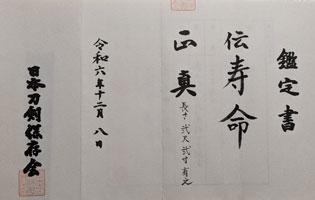 鑑定書
伝寿命
正真
長サ弐尺弐寸有之
令和六年十二月八日
日本刀剣保存会